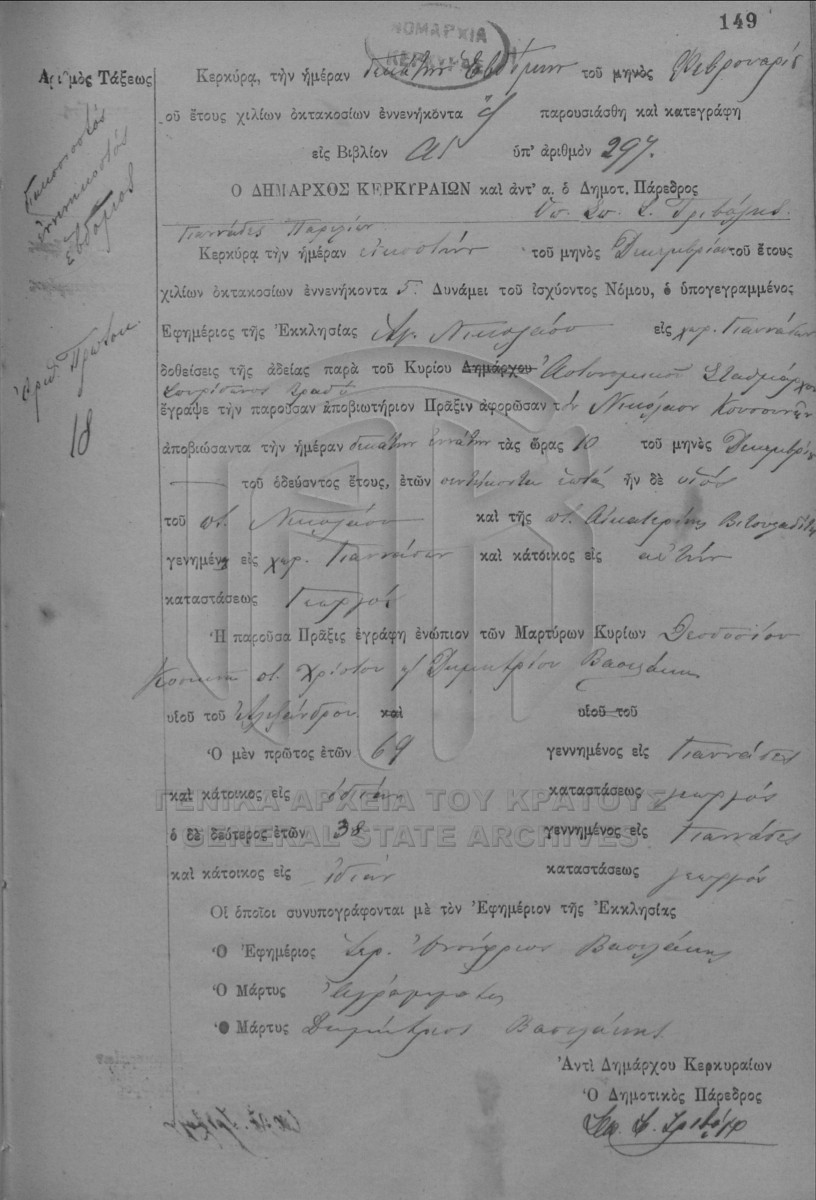 149
ΝΟΜΑΡΧΙΑ
ΚΕΡΚΥΡΑΣ
Ἀριθμὸς Τάξεως
Κερκύρᾳ, τὴν ἡμέραν δεκάτην ἑβδόμην τοῦ μηνὸς Φεβρουαρίου
οῦ ἔτους χιλίων ὀκτακοσίων ἐννενήκοντα παρουσιάσθη καὶ κατεγράφη
εἰς Βιβλίον ὑπ' ἀριθμὸν 297.
διακοσιοστός
ἐννενηκοστός
ἕβδομος
Ὁ ΔΗΜΑΡΧΟΣ ΚΕΡΚΥΡΑΙΩΝ καὶ ἀντ' α. ὁ Δημοτ. Πάρεδρος
Γιαννάδες
Κερκύρᾳ τὴν ἡμέραν εἰκοστήν τοῦ μηνὸς Δεκεμβρίου τοῦ ἔτους
χιλίων ὀκτακοσίων ἐννενήκοντα 5 Δυνάμει τοῦ ἰσχύοντος Νόμου, ὁ ὑπογεγραμμένος
Ἐφημέριος τῆς Ἐκκλησίας Ἁγ. Νικολάου εἰς χωρ. Γιαννάδων
Ἀριθ. Πρωτοκ.
18
δοθείσεις τῆς ἀδείας παρὰ τοῦ Κυρίου Δημάρχου Ἀστυνομικοῦ Σταθμάρχου
ἔγραψε τὴν παροῦσαν ἀποβιωτήριον Πρᾶξιν ἀφορῶσαν τὸν Νικόλαον
ἀποβιώσαντα τὴν ἡμέραν δεκάτην ἐννάτην τὰς ὥρας 10 τοῦ μηνὸς Δεκεμβρίου
τοῦ ὁδεύσντος ἔτους, ἐτῶν πεντήκοντα ἑπτά ἦν δὲ υἱὸς
τοῦ ποτ. Νικολάου καὶ τῆς ποτ. Αἰκατερίνης
γενημένος εἰς χωρ. Γιαννάδων καὶ κάτοικος εἰς αὐτήν
καταστάσεως Γεωργός
Ἡ παροῦσα Πρᾶξις ἐγράφη ἐνώπιον τῶν Μαρτύρων Κυρίων Θεοδοσίου
ποτ. Χρίστου Δημητρίου Βασιλάκη
υἱοῦ τοῦ Ἀλεξάνδρου καὶ υἱοῦ τοῦ
Ὁ μὲν πρῶτος ἐτῶν 69 γεννημένος εἰς Γιαννάδες
καὶ κάτοικος εἰς ἰδίαν καταστάσεως γεωργός
ὁ δὲ δεύτερος ἐτῶν 38 γεννημένος εἰς Γιαννάδες
καὶ κάτοικος εἰς ἰδίαν καταστάσεως γεωργός
ΓΕΝΙΚΑ ΑΡΧΕΙΑ ΤΟΥ ΚΡΑΤΟΥΣ
GENERAL STATE ARCHIVES
Οἱ ὁποῖοι συνυπογράφονται μὲ τὸν Ἐφημέριον τῆς Ἐκκλησίας
Ὁ Ἐφημέριος Ἱερ. Ὀνούφριος Βασιλάκης
Ὁ Μάρτυς Ἀγράμματος
Ὁ Μάρτυς Δημήτριος Βασιλάκης
Ἀντὶ Δημάρχου Κερκυραίων
Ὁ Δημοτικὸς Πάρεδρος